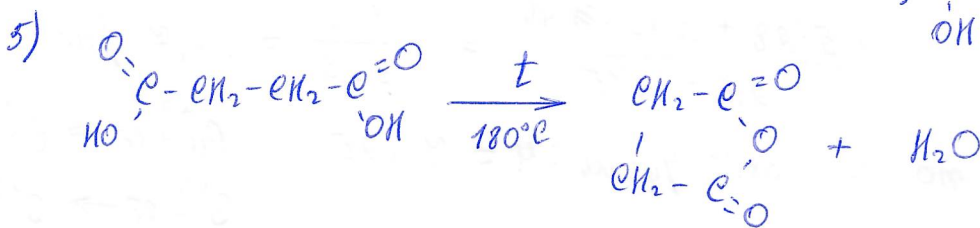 OH
5) O=C(HO)-CH₂-CH₂-C(=O)OH t 180°C CH₂-C=O O CH₂-C=O + H₂O